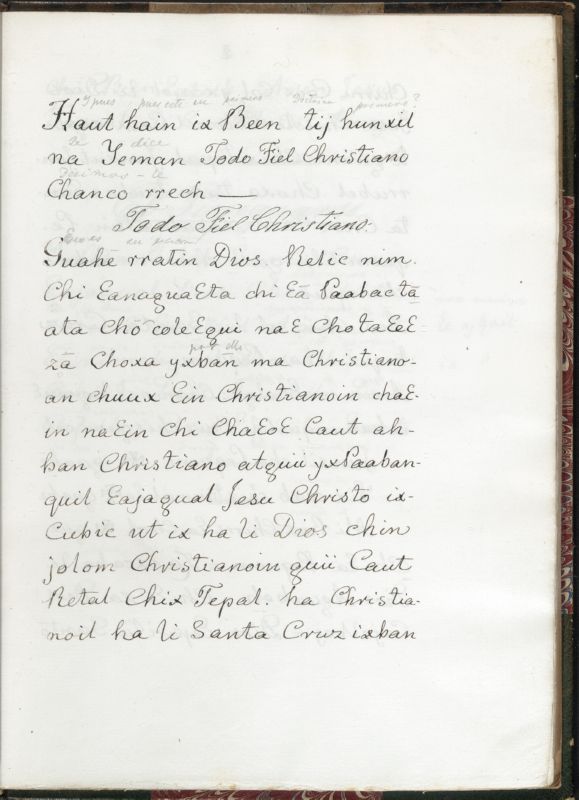 Haut hain ix Been tij hunxil
na Yeman Todo Fiel Christiano
Chanco rrech —
Todo Fiel Christiano.
Guahē rratin Dios. Retic nim.
Chi Ɛanaguaɛta chi Ɛā Paabactā
ata Chō coleɛqui naɛ Chotaɛeɛ-
zā Choxa yxbān ma Christiano-
an chuux Ɛin Christianoin chaɛ-
in naɛin Chi Chaɛoɛ Caut ah-
ban Christiano atquii yxPaaban-
quil Ɛajagual Jesu Christo ix-
Cubic ut ix ha li Dios chin
jolom Christianoin quii Caut
Retal Chix Tepal. ha Christia-
noil ha li Santa Cruz ixban